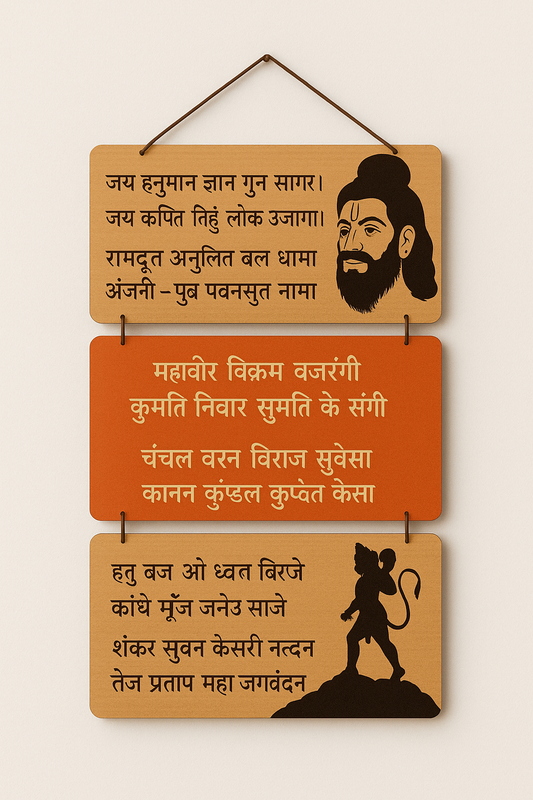 जय हनुमान ज्ञान गुन सागर।
जय कपित तिहुं लोक उजागा।
रामदूत अनुलित बल धामा
अंजनी – पुब पवनसुत नामा
महावोर विक्रम वजरंगी
कुमति निवार सुमति के संगी
चंचल वरन विराज सुवेसा
कानन केसा
हतु बज ओ ध्वत बिरजे
कांधे मूँज जनेउ साजे
शंकर सुवन केसरी नत्दन
तेज प्रताप महा जगवंदन